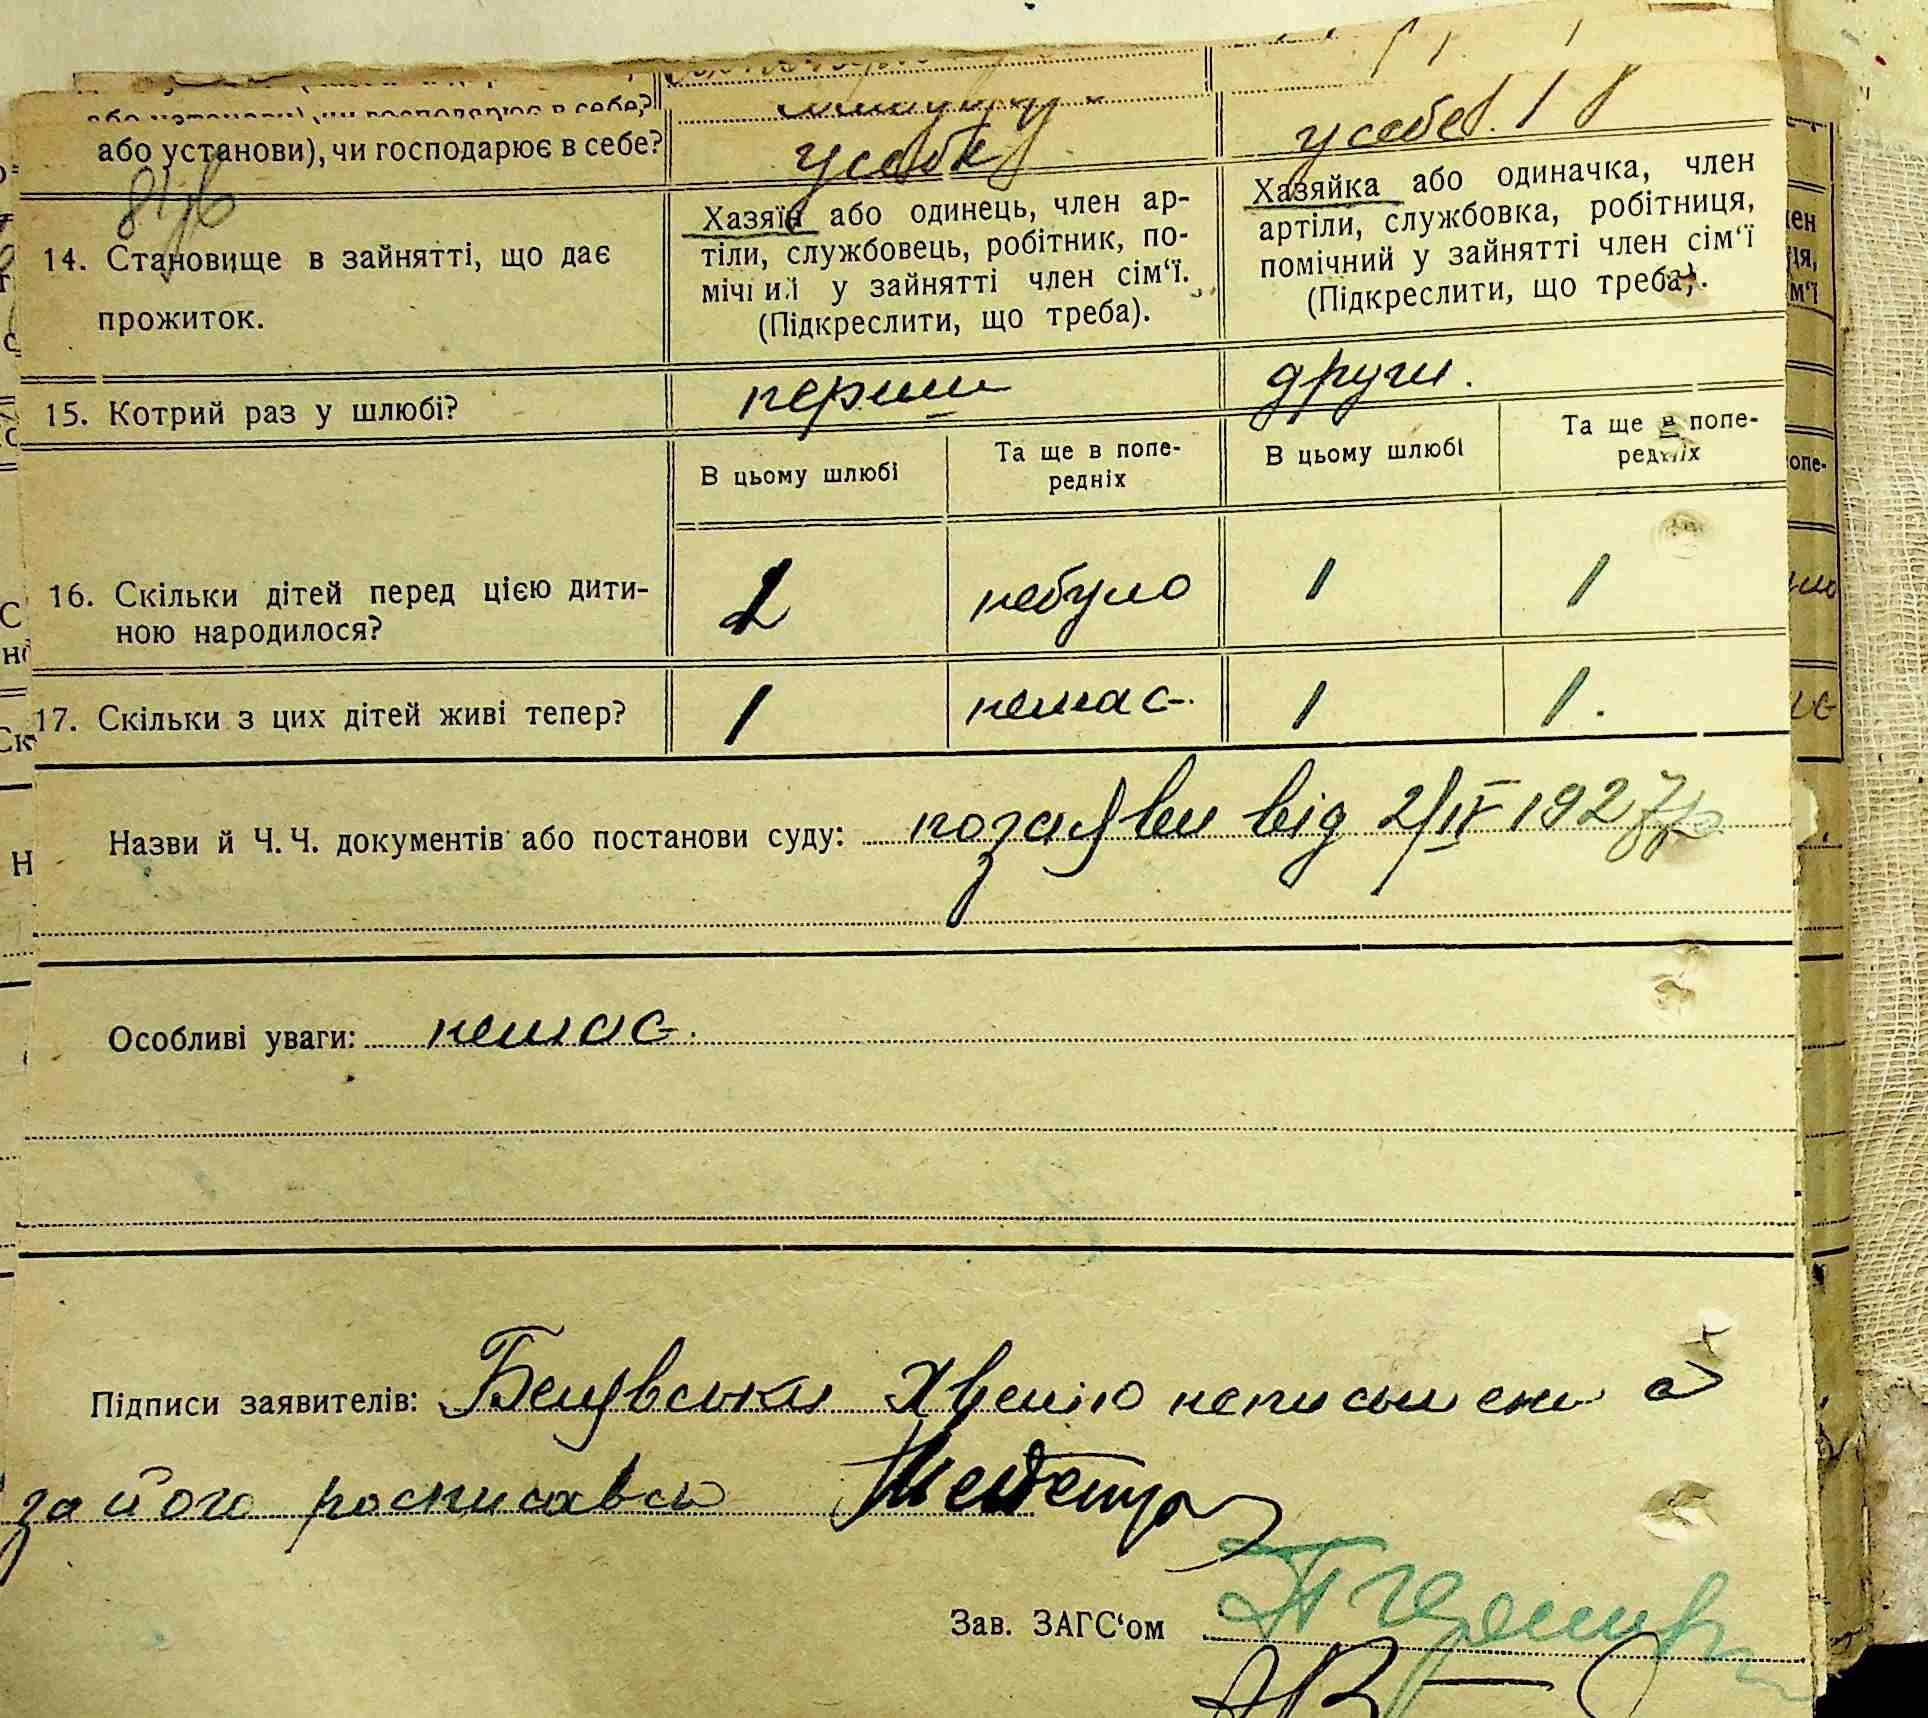 або установи), чи господарює в себе?
у себе
у себе.
14. Становище в зайнятті, що дає
прожиток.
Хазяїн або одинець, член ар-
тіли, службовець, робітник, по-
мічний у зайнятті член сім'ї.
(Підкреслити, що треба).
Хазяйка або одиначка, член
артіли, службовка, робітниця,
помічний у зайнятті член сім'ї
(Підкреслити, що треба).
15. Котрий раз у шлюбі?
перши
други.
В цьому шлюбі
Та ще в попе-
редніх
В цьому шлюбі
Та ще в попе-
редніх
16. Скільки дітей перед цією дити-
ною народилося?
небуло
1
1
17. Скільки з цих дітей живі тепер?
1
немає.
1
1.
Назви й Ч. Ч. документів або постанови суду: по заяви від 2/IV 1927р
Особливі уваги: немає.
Підписи заявителів:
за його росписавсь
Зав. ЗАГС'ом